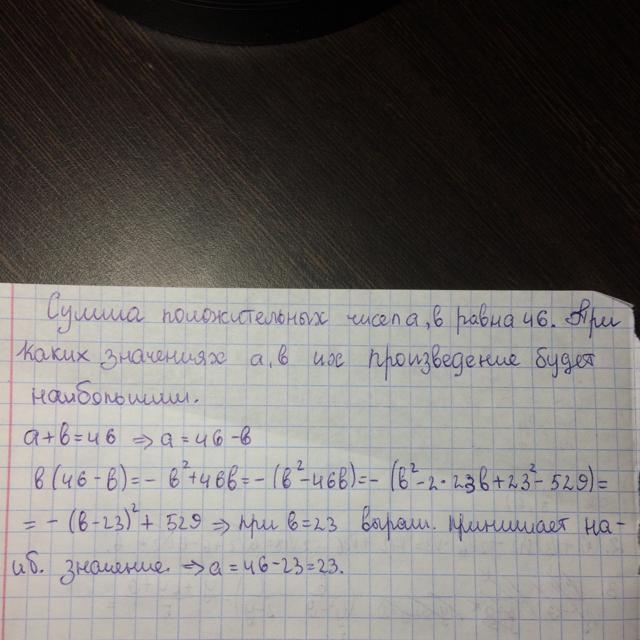 Сумма положительных чисел a, в равна 46. При
каких значениях a, в их произведение будет
наибольшим.
a+в=46 ⇒ a=46-в
в(46-в)=-в²+46в=-(в²-46в)=-(в²-2·23в+23²-529)=
=-(в-23)²+529 ⇒ при в=23 выраж. принимает на-
иб. значение. ⇒ a=46-23=23.